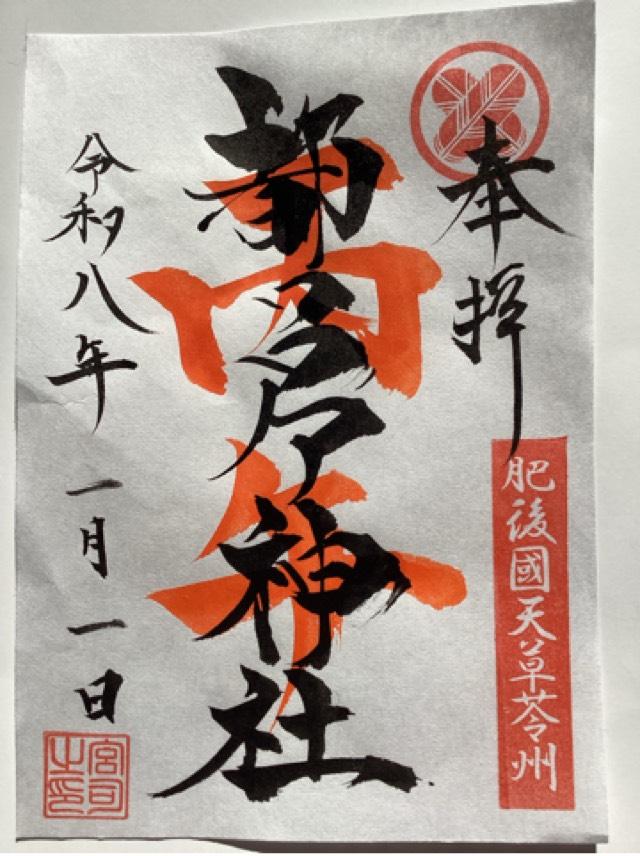 奉拝
肥後國天草苓州
丙午
多戸神社
令和八年
一月一日
宮司之印